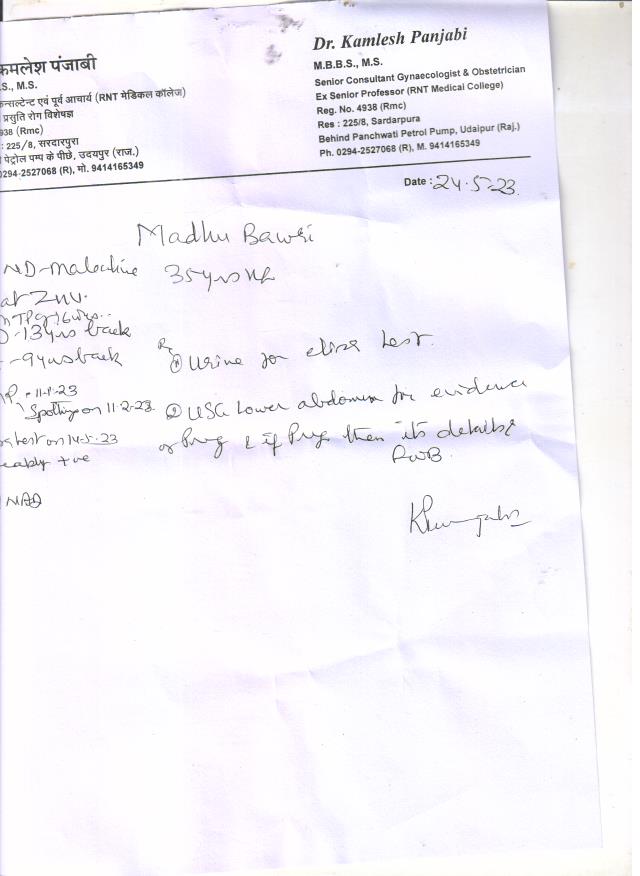 कमलेश पंजाबी
Dr. Kamlesh Panjabi
S., M.S.
M.B.B.S., M.S.
न्सल्टेन्ट एवं पूर्व आचार्य (RNT मेडिकल कॉलेज)
Senior Consultant Gynaecologist & Obstetrician
प्रसुति रोग विशेषज्ञ
Ex Senior Professor (RNT Medical College)
938 (Rmc)
Reg. No. 4938 (Rmc)
: 225/8, सरदारपुरा
Res : 225/8, Sardarpura
पेट्रोल पम्प के पीछे, उदयपुर (राज.)
Behind Panchwati Petrol Pump, Udaipur (Raj.)
0294-2527068 (R), मो. 9414165349
Ph. 0294-2527068 (R), M. 9414165349
Date : 24.5.23
Madhu Bawri
35yrs
-13yrs back
-9yrs back
Urine for eliza test.
11.1.23
Spotting on 11.2.23
② USG Lower abdomen for evidence
test on 14.5.23
of Preg & if Preg then its details
+ve
NAD